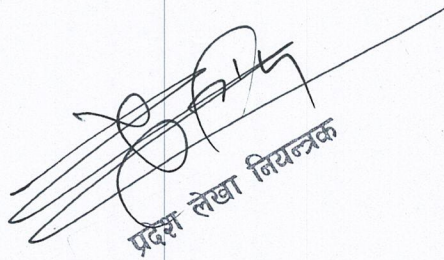 प्रदेश लेखा नियन्त्रक